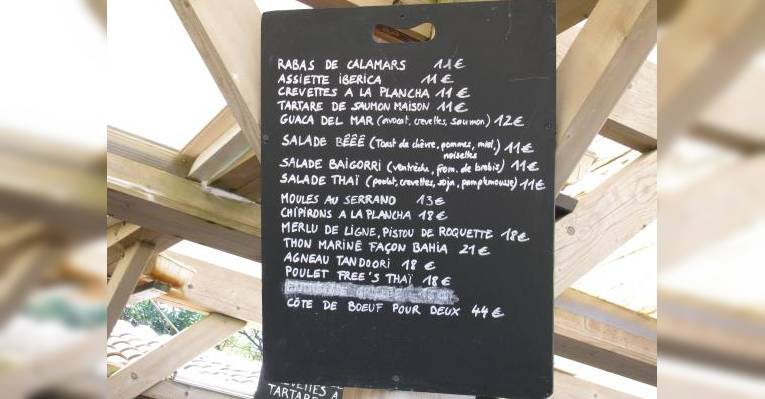 RABAS DE CALAMARS 11€
ASSIETTE IBERICA 11€
CREVETTES A LA PLANCHA 11€
TARTARE DE SAUMON MAISON 11€
GUACA DEL MAR (avocat, crevettes, saumon) 12€
SALADE BÊÊÊ (Toast de chèvre, pommes, miel, noisettes) 11€
SALADE BAIGORRI (ventrèche, from. de brebis) 11€
SALADE THAÏ (poulet, crevettes, soja, pamplemousse) 11€
MOULES AU SERRANO 13€
CHIPIRONS A LA PLANCHA 18€
MERLU DE LIGNE, PISTOU DE ROQUETTE 18€
THON MARINÉ FAÇON BAHIA 21€
AGNEAU TANDOORI 18€
POULET FREE'S THAÏ 18€
CÔTE DE BOEUF POUR DEUX 44€
CREVETTES A
TARTARE